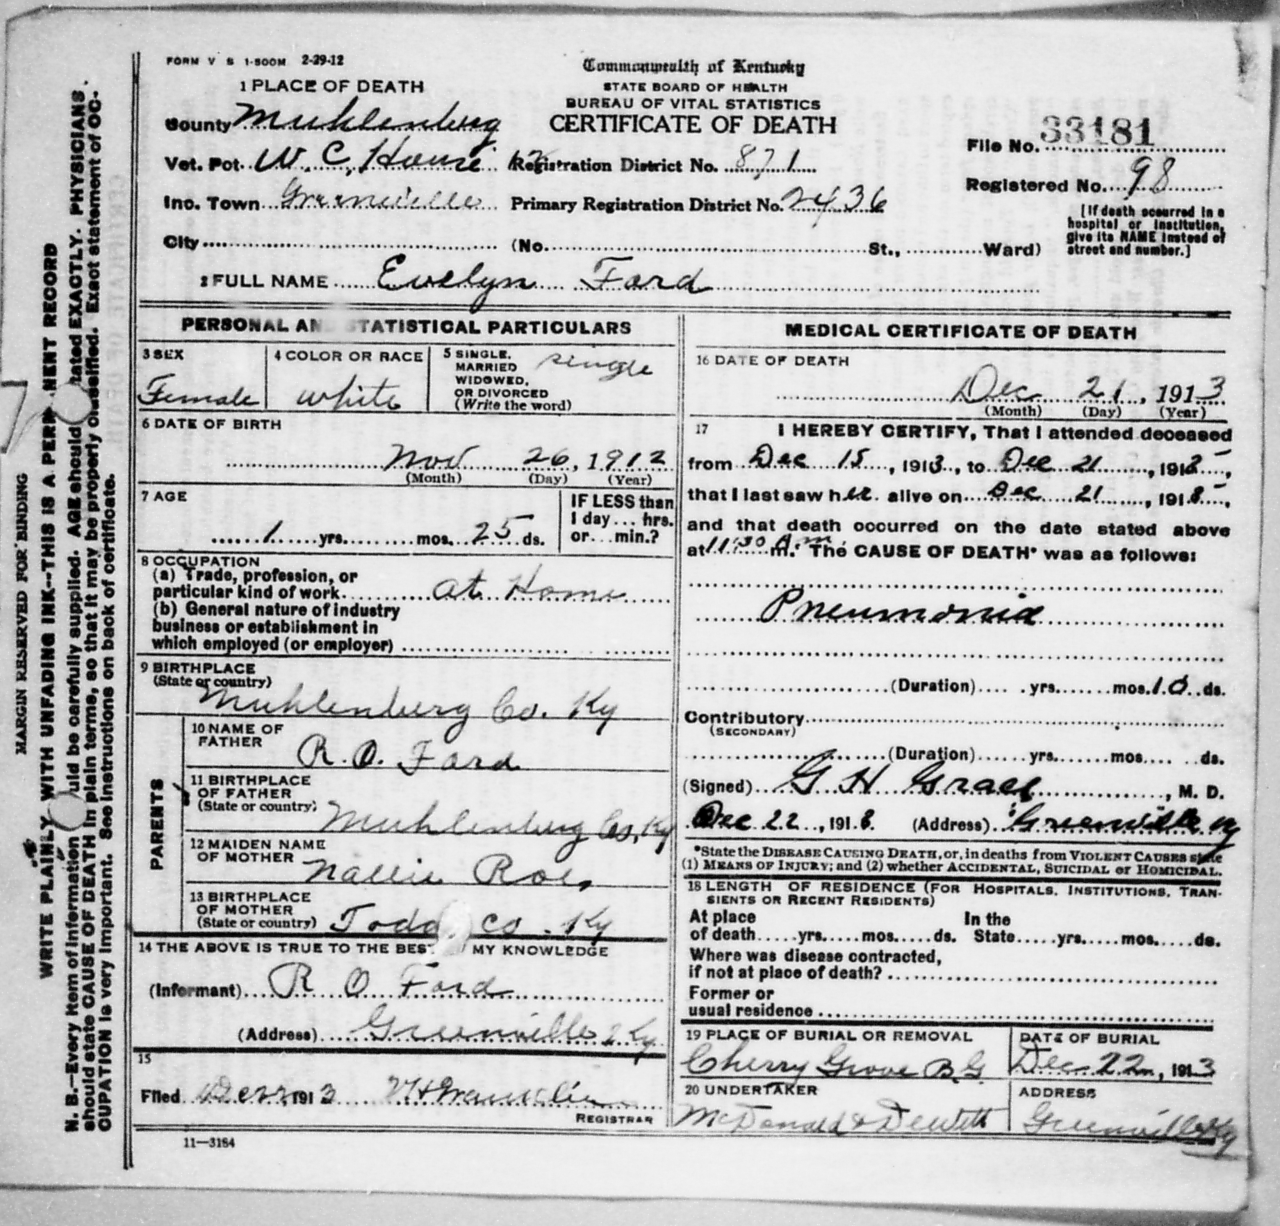 FORM V S 1-500M 2-29-12
Commonwealth of Kentucky
STATE BOARD OF HEALTH
BUREAU OF VITAL STATISTICS
CERTIFICATE OF DEATH
1 PLACE OF DEATH
County Muhlenberg
Vot. Pct. W. C. House
Registration District No. 871
Inc. Town Greenville
Primary Registration District No. 2436
City (No. St., Ward)
File No. 33181
Registered No. 98
[If death occurred in a
hospital or institution,
give its NAME instead of
street and number.]
2 FULL NAME Evelyn Ford
PERSONAL AN STATISTICAL PARTICULARS
3 SEX
Female
4 COLOR OR RACE
white
5 SINGLE,
MARRIED
WIDOWED,
OR DIVORCED
(Write the word)
single
6 DATE OF BIRTH
Nov 26, 1912
(Month) (Day) (Year)
7 AGE
1 yrs. mos. 25 ds.
IF LESS than
1 day... hrs.
or... min.?
8 OCCUPATION
(a) Trade, profession, or
particular kind of work at Home
(b) General nature of industry
business or establishment in
which employed (or employer)
9 BIRTHPLACE
(State or country)
Muhlenberg Co. Ky
PARENTS
10 NAME OF
FATHER
R. O. Ford
11 BIRTHPLACE
OF FATHER
(State or country)
Muhlenberg Co, Ky
12 MAIDEN NAME
OF MOTHER
13 BIRTHPLACE
OF MOTHER
(State or country)
Todd Co. Ky
14 THE ABOVE IS TRUE TO THE BEST MY KNOWLEDGE
(Informant) R O Ford
(Address) Greenville Ky
15
Filed 191 3
REGISTRAR
11-3184
MEDICAL CERTIFICATE OF DEATH
16 DATE OF DEATH
Dec 21, 1913
(Month) (Day) (Year)
17 I HEREBY CERTIFY, That I attended deceased
from Dec 15, 1913, to Dec 21, 191
that I last saw her alive on Dec 21, 191
and that death occurred on the date stated above
at 11:30 A m. The CAUSE OF DEATH* was as follows:
Pneumonia
(Duration) yrs. mos. 10 ds.
Contributory
(SECONDARY)
(Duration) yrs. mos. ds.
(Signed) G H , M. D.
Dec 22, 191 (Address) Greenville Ky
*State the DISEASE CAUSING DEATH, or, in deaths from VIOLENT CAUSES state
(1) MEANS OF INJURY; and (2) whether ACCIDENTAL, SUICIDAL or HOMICIDAL.
18 LENGTH OF RESIDENCE (FOR HOSPITALS, INSTITUTIONS, TRAN-
SIENTS OR RECENT RESIDENTS)
At place
of death yrs. mos. ds.
In the
State yrs. mos. ds.
Where was disease contracted,
if not at place of death?
Former or
usual residence
19 PLACE OF BURIAL OR REMOVAL
Cherry Grove B.G
DATE OF BURIAL
Dec 22, 1913
20 UNDERTAKER
McDonald & Dewitt
ADDRESS
Greenville Ky
MARGIN RESERVED FOR BINDING
WRITE PLAINLY WITH UNFADING INK--THIS IS A PER NENT RECORD
N. B.--Every item of information uld be carefully supplied. AGE should tated EXACTLY. PHYSICIANS
should state CAUSE OF DEATH in plain terms, so that it may be properly classified. Exact statement of OC-
CUPATION is very important. See instructions on back of certificate.